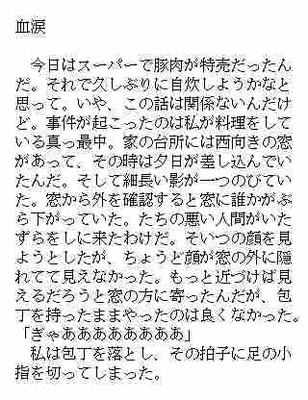 血涙
　今日はスーパーで豚肉が特売だったん
だ。それで久しぶりに自炊しようかなと
思って。いや、この話は関係ないんだけ
ど。事件が起こったのは私が料理をして
いる真っ最中。家の台所には西向きの窓
があって、その時は夕日が差し込んでい
たんだ。そして細長い影が一つのびてい
た。窓から外を確認すると窓に誰かがぶ
ら下がっていた。たちの悪い人間がいた
ずらをしに来たわけだ。そいつの顔を見
ようとしたが、ちょうど顔が窓の外に隠
れてて見えなかった。もっと近づけば見
えるだろうと窓の方に寄ったんだが、包
丁を持ったままやったのは良くなかった。
「ぎゃああああああああ」
　私は包丁を落とし、その拍子に足の小
指を切ってしまった。